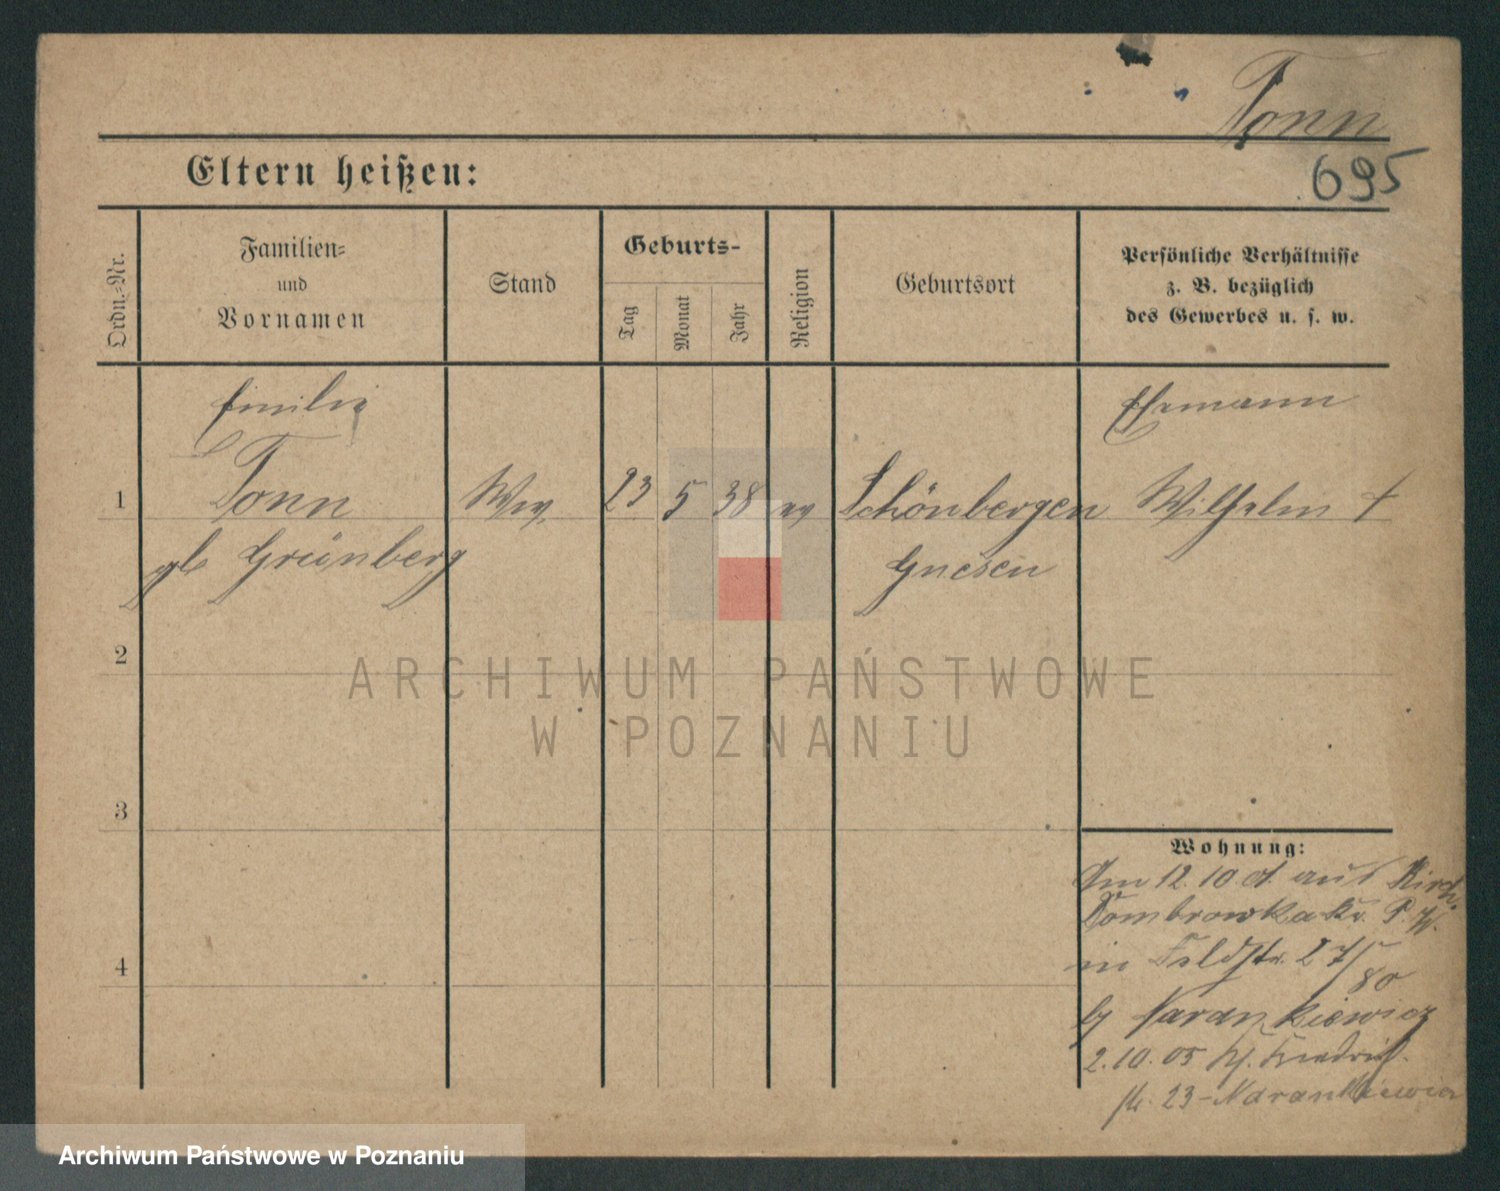 Tonn
695
Eltern heißen:
Ordn.-Nr.
Familien-
und
Vornamen
Stand
Geburts-
Tag
Monat
Jahr
Religion
Geburtsort
Persönliche Verhältnisse
z. B. bezüglich
des Gewerbes u. s. w.
Emilie
Ehemann
1 Tonn Ww. 23 5 38 ev Schönbergen Wilhelm †
gb Grünberg Gnesen
2
3
4
Wohnung:
Am 12.10.01 aus Kirch.
Dombrowka Kr. P. W.
in Feldstr. 27/80
b Narankiewicz
2.10.05
str. 23 - Narankiewicz
ARCHIWUM PAŃSTWOWE
W POZNANIU
Archiwum Państwowe w Poznaniu